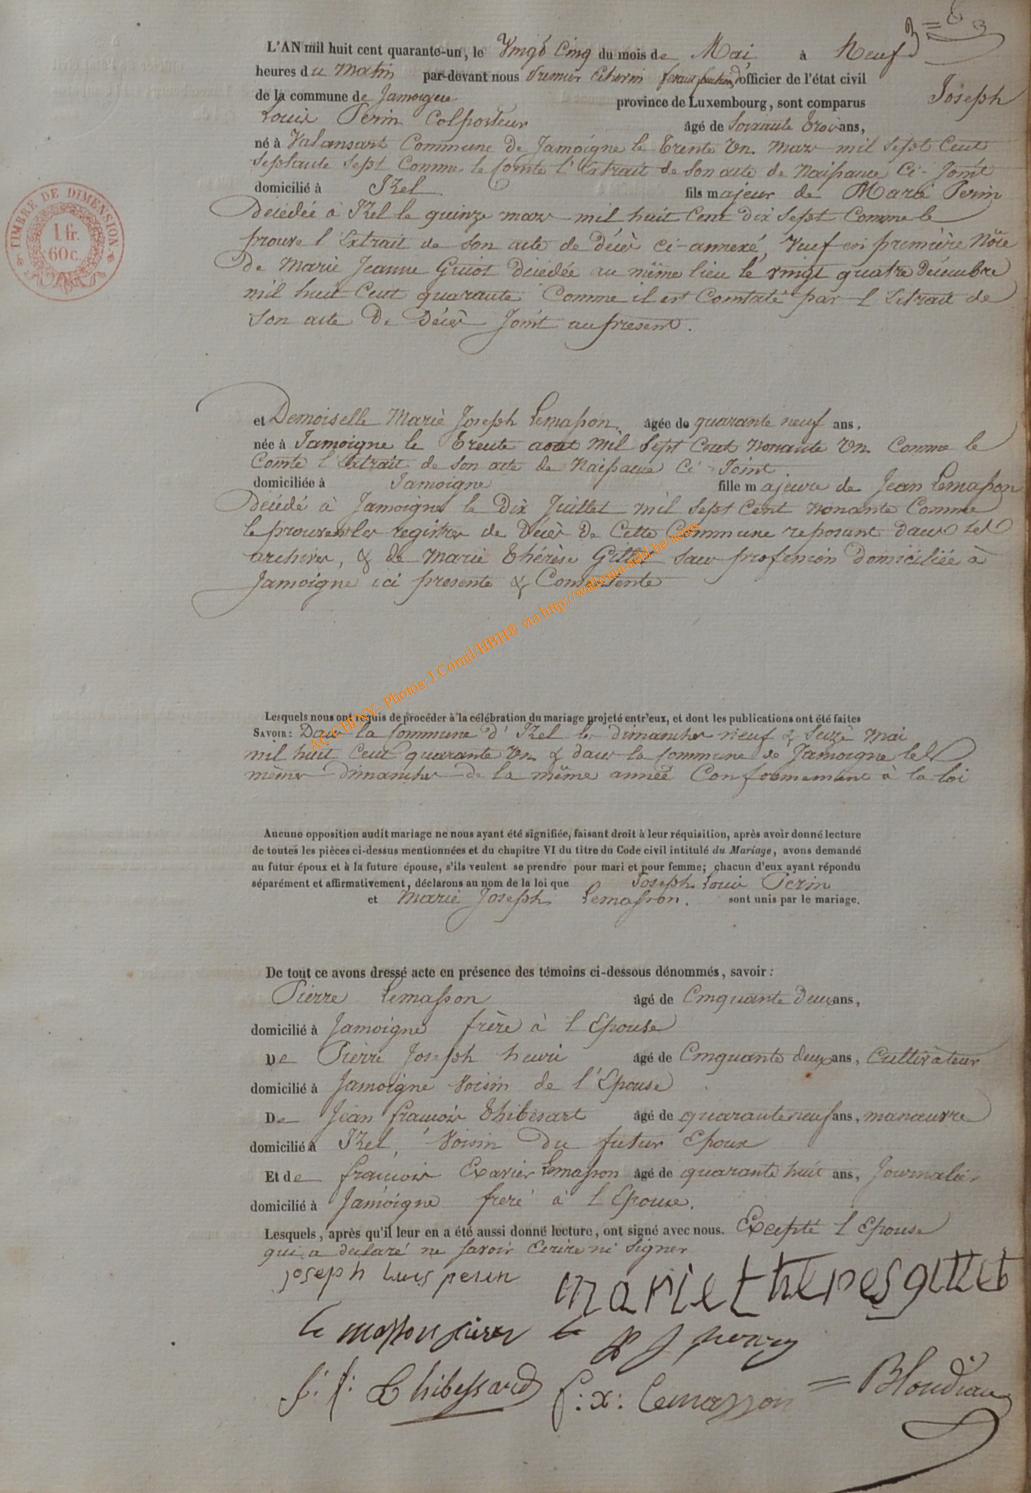 L'AN mil huit cent quarante-un, le Vingt Cinq du mois de Mai à Neuf
heures du Matin par-devant nous premier Echevin officier de l'état civil
de la commune de Jamoigne province de Luxembourg, sont comparus Joseph
Louis Perin Colporteur âgé de Soixante trois ans,
né à Valansart Commune de Jamoigne le trente Un Mars mil Sept Cent
Septante Sept Comme le Conste l'Extrait de son acte de Naissance Ci-Joint
domicilié à Izel fils majeur de Marie Perin
Décédée à Izel le quinze mars mil huit Cent dix Sept Comme le
prouve l'Extrait de son acte de décès ci-annexé, Veuf en première Nôce
De Marie Jeanne Guiot Décédée au même lieu le vingt quatre décembre
mil huit Cent quarante Comme il est Constaté par l'Extrait de
Son acte De Décès Joint au présent.
et Demoiselle Marie Joseph Lemasson âgée de quarante neuf ans,
née à Jamoigne le trente août Mil Sept Cent Nonante Un Comme le
Conste l'Extrait de Son acte de Naissance Ci-Joint.
domiciliée à Jamoigne fille majeure de Jean Lemasson
Décédé à Jamoigne le Dix Juillet mil Sept Cent nonante Comme
le prouvent les registres de Décès De Cette Commune reposant dans les
archives, & de Marie Thérèse Gillet Sans profession domiciliée à
Jamoigne ici présente & Consentente
Lesquels nous ont requis de procéder à la célébration du mariage projeté entr'eux, et dont les publications ont été faites
SAVOIR: Dans la Commune d'Izel les dimanches neuf & Seize Mai
mil huit Cent quarante Un & dans la Commune de Jamoigne les
mêmes dimanches de la même année Conformement à la loi
Aucune opposition audit mariage ne nous ayant été signifiée, faisant droit à leur réquisition, après avoir donné lecture
de toutes les pièces ci-dessus mentionnées et du chapitre VI du titre du Code civil intitulé du Mariage, avons demandé
au futur époux et à la future épouse, s'ils veulent se prendre pour mari et pour femme; chacun d'eux ayant répondu
séparément et affirmativement, déclarons au nom de la loi que Joseph Louis Perin
et Marie Joseph Lemasson. sont unis par le mariage.
De tout ce avons dressé acte en présence des témoins ci-dessous dénommés, savoir:
Pierre Lemasson âgé de Cinquante deux ans,
domicilié à Jamoigne frère à l'Epouse
De Pierre Joseph henri âgé de Cinquante deux ans, Cultivateur
domicilié à Jamoigne Voisin de l'Epouse
De Jean françois Thibesart âgé de quarante neuf ans, manœuvre
domicilié à Izel, Voisin Du futur Epoux
Et de françois Exavier Lemasson âgé de quarante huit ans, Journalier
domicilié à Jamoigne frere à l'Epouse.
Lesquels, après qu'il leur en a été aussi donné lecture, ont signé avec nous. Excepté l'Epouse
qui a declaré ne savoir Ecrire ni signer
joseph Luis perin
marie thereses gillet
le masson pierre
p j henry
j: f: Thibessard
f: x: lemasson
Blondiau
TIMBRE DE DIMENSION
1 fr.
60 c.